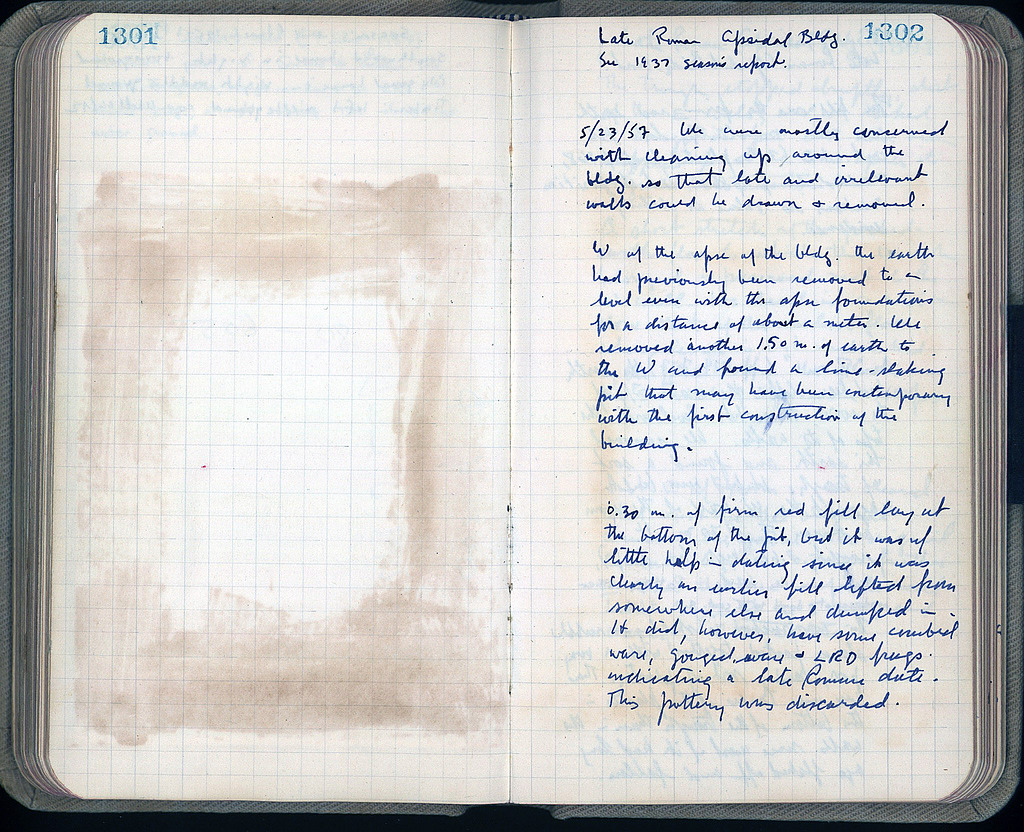 1301
1302
Late Roman Apsidal Bldg.
See 1937 season's report.
5/23/57 We were mostly concerned
with cleaning up around the
bldg. so that late and irrelevant
walls could be drawn & removed.
W of the apse of the bldg. the earth
had previously been removed to a
level even with the apse foundations
for a distance of about a meter. We
removed another 1.50 m. of earth to
the W and found a lime-slaking
pit that may have been contemporary
with the first construction of the
building.
0.30 m. of firm red fill lay at
the bottom of the pit, but it was of
little help in dating since it was
clearly an earlier fill lifted from
somewhere else and dumped in.
It did, however, have some combed
ware, gouged ware & LRD frags.
indicating a late Roman date.
This pottery was discarded.